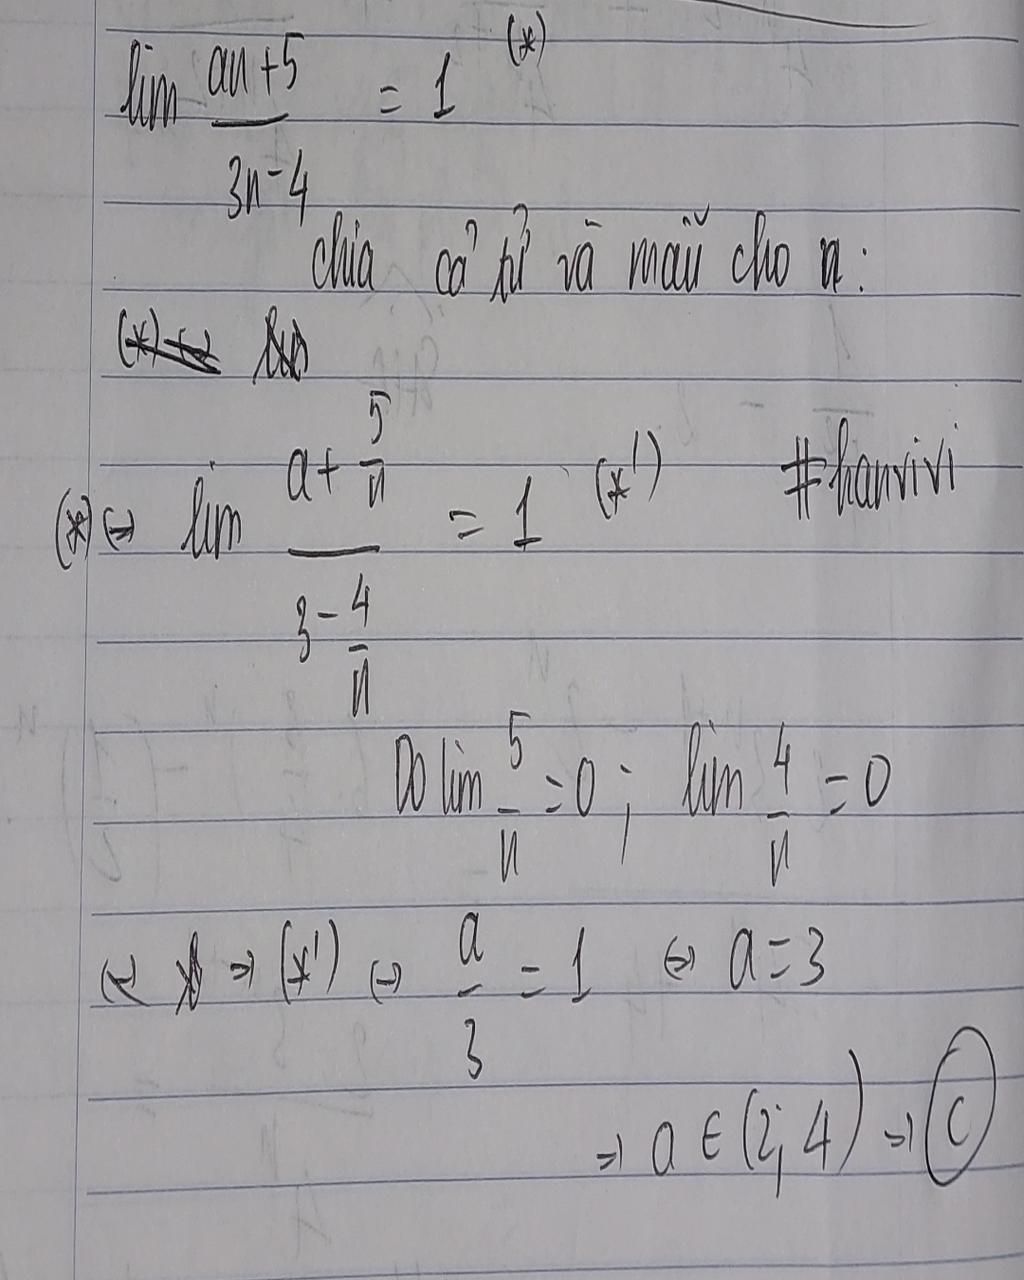 lim (an+5)/(3n-4) = 1 (*)
chia cả tử và mẫu cho n:
(*) ⇔ lim (a + 5/n)/(3 - 4/n) = 1 (*') #hanvivi
Do lim 5/n = 0 ; lim 4/n = 0
⇒ (*') ⇔ a/3 = 1 ⇔ a = 3
⇒ a ∈ (2; 4) ⇒ C